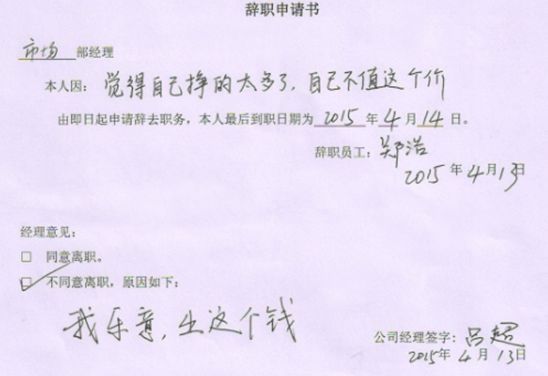 辞职申请书
市场 部经理
本人因：觉得自己挣的太多了，自己不值这个价
由即日起申请辞去职务，本人最后到职日期为 2015 年 4 月 14 日。
辞职员工：郑浩
2015 年 4 月 13日
经理意见：
□ 同意离职。
□ 不同意离职，原因如下：
我乐意，出这个钱
公司经理签字：吕超
2015 年 4 月 13 日